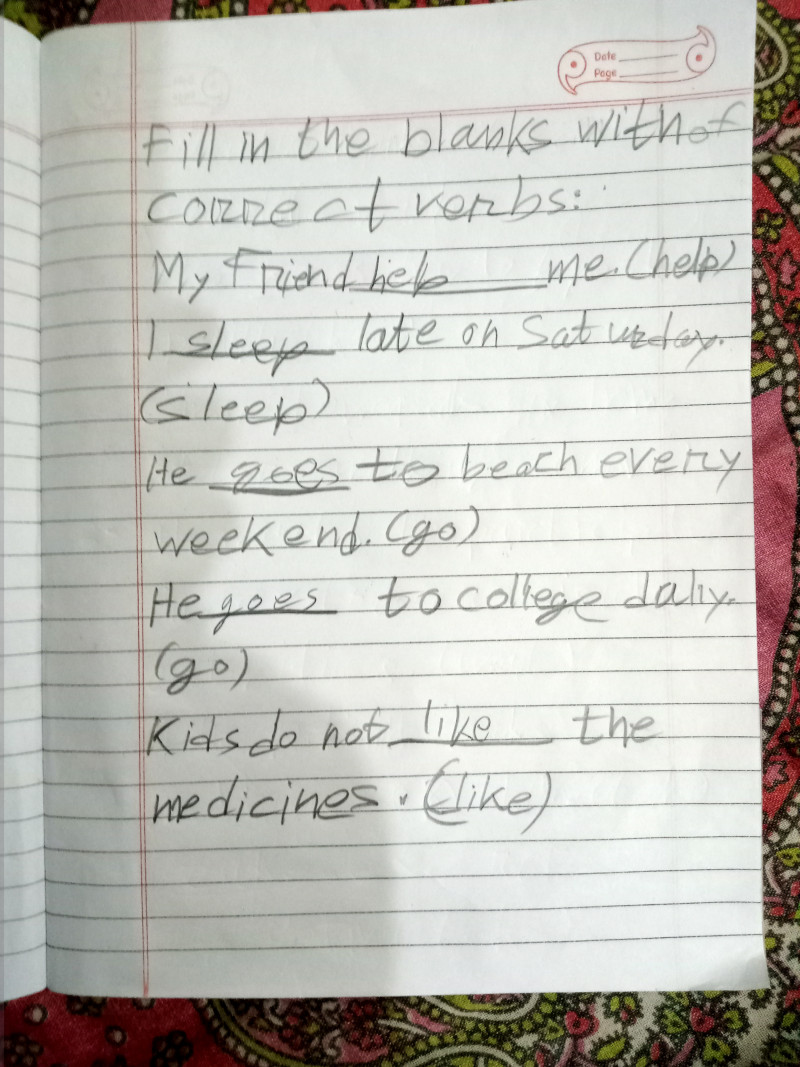 Date
Page
Fill in the blanks with of
correct verbs:
My Friend help me. (help)
I sleep late on Saturday.
(sleep)
He goes to beach every
weekend. (go)
He goes to college daliy.
(go)
Kids do not like the
medicines. (like)